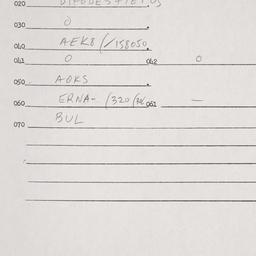 020
030 0
040 AEK8 /158050
041 0 042 0
050 AOKS
060 ERNA- /320/ 061 —
070 BUL